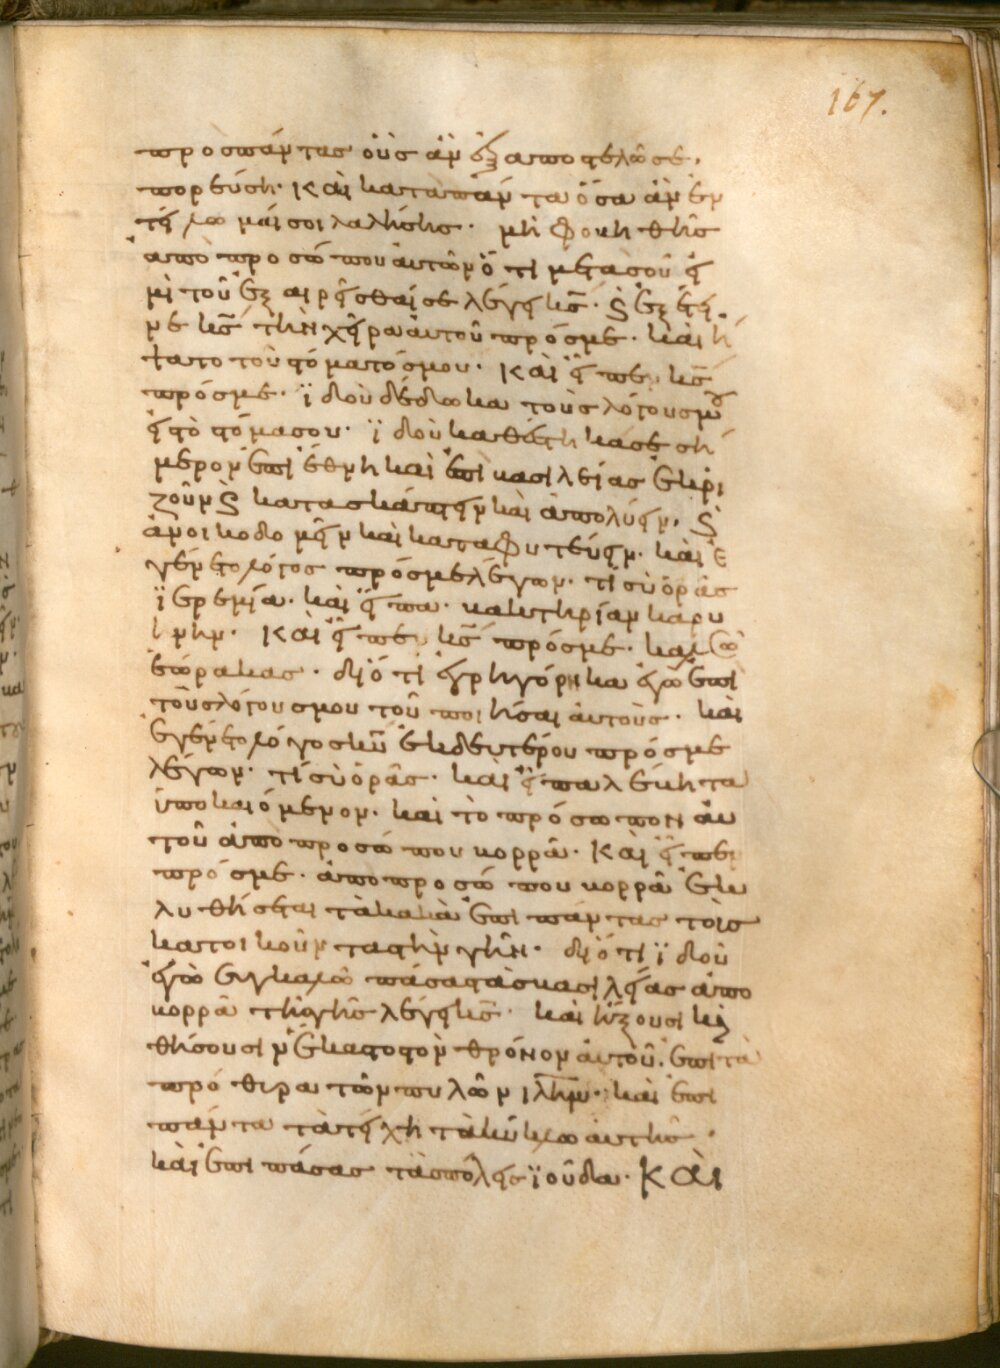 167.
προσπάντας οὓσ ἂν ἐξαποστελῶσε,
πορεύση· καὶ κατὰπάντα ὅσα ἂν ἐν
τείλωμαί σοι λαλήσης· μὴ φοβηθῆς
ἀπὸ προσώπου ἀυτῶν ὅτι μετασοῦ εἰ
μὶ τοῦ ἐξαιρεῖσθαίσε λέγει κ̅ς̅· ϛ ἐξέτει
νε κ̅ς̅ τὴν χεῖρα ἀυτοῦ πρόσμε· καὶ ἥ
ψατο τοῦ στόματόσμου· καὶ εἶπεν κ̅ς̅
πρόσμε· ϊδοὺ δέδωκα τοὺσ λόγουσμου
εἰσ τὸ στόμασου· ϊδοὺ καθέστηκάσε σή
μερον ἐπὶ ἔθνη καὶ ἐπὶ βασιλείας ἐκρι
ζοῦν ϛ κατασκάπτειν καὶ ἀπολύειν, ϛ
ἀνοικοδομεῖν καὶ καταφυτεύειν. καὶ ἐ
γένετο λόγος πρόσμε λέγων. τί σὺ ὁρᾶς
ϊερεμία· καὶ εἶπα· βακτηρίαν καρυ
ίνην· καὶ εἶπεν κ̅ς̅ πρόσμε· καλῶ
ἑώρακας· διότι ἐγρηγόρηκα ἐγὼ ἐπὶ
τοὺσλόγουσμου τοῦ ποιῆσαι ἀυτούς· καὶ
ἐγένετο λόγοσ κ̅υ̅ ἐκδευτέρου πρόσμε
λέγων· τί σὺ ὁρᾶς· καὶ εἶπα λέβητα
ὑποκαιόμενον· καὶ τὸ πρόσωπον ἀυ
τοῦ ἀπὸ προσώπου βορρᾶ· καὶ εἶπεν
πρόσμε· ἀπὸ προσώπου βορρᾶ ἐκκ
λυθήσεται τὰ κακὰ ἐπὶ πάντας τοῖς
κατοικοῦντας τὴν γῆν· διότι ϊδοὺ
ἐγὼ συγκαλῶ πάσασ τὰσ βασιλείας ἀπὸ
βορρᾶ τῆσ γῆς λέγει κ̅ς̅· καὶ ἥξουσι καὶ
θήσουσιν ἕκαστος τὸν θρόνον ἀυτοῦ. ἐπὶ τὰ
πρόθιρα τῶν πυλῶν ι̅λ̅η̅μ̅· καὶ ἐπὶ
πάντα τὰ τείχη τὰ κύκλω ἀυτῆς·
καὶ ἐπὶ πάσας τὰσ πόλεις ϊούδα· Καὶ